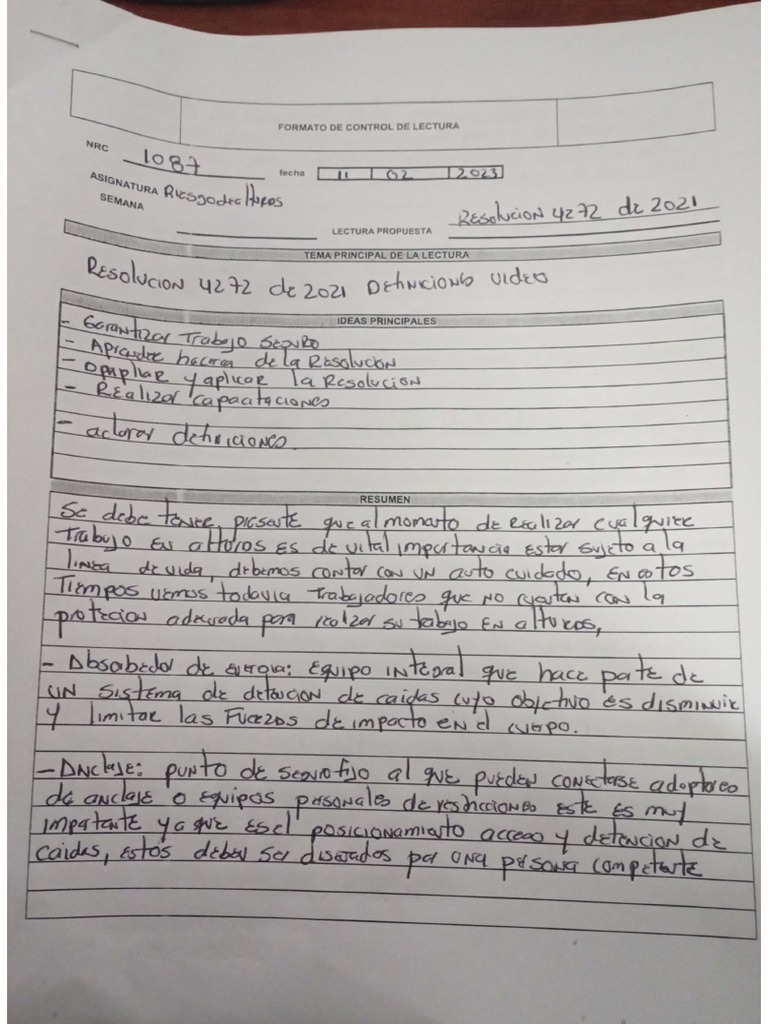 FORMATO DE CONTROL DE LECTURA
NRC 1087 fecha 11 02 2023
ASIGNATURA Riesgo de alturas
SEMANA LECTURA PROPUESTA Resolucion 4272 de 2021
TEMA PRINCIPAL DE LA LECTURA
Resolucion 4272 de 2021 Definiciones video
IDEAS PRINCIPALES
- Garantizar Trabajo seguro
- Aprender hacerca de la Resolucion
- y aplicar la Resolucion
- Realizar capacitaciones
- aclarar definiciones.
RESUMEN
Se debe tener, presente que al momento de realizar cualquier
Trabajo en alturas es de vital importancia estar sujeto a la
linea de vida, debemos contar con un auto cuidado, en estos
Tiempos vemos todavia trabajadores que no cuentan con la
protecion adecuada para realizar su trabajo en alturas,
- Absorbedor de energia: Equipo integral que hace parte de
un sistema de detencion de caidas cuyo objectivo es disminuir
y limitar las Fuerzas de impacto en el cuerpo.
- Anclaje: punto de seguro fijo al que pueden conectarse adaptores
de anclaje o equipos personales de restricciones este es muy
importante ya que es el posicionamiento acceso y detencion de
caidas, estos deben ser diseñados por una persona competente